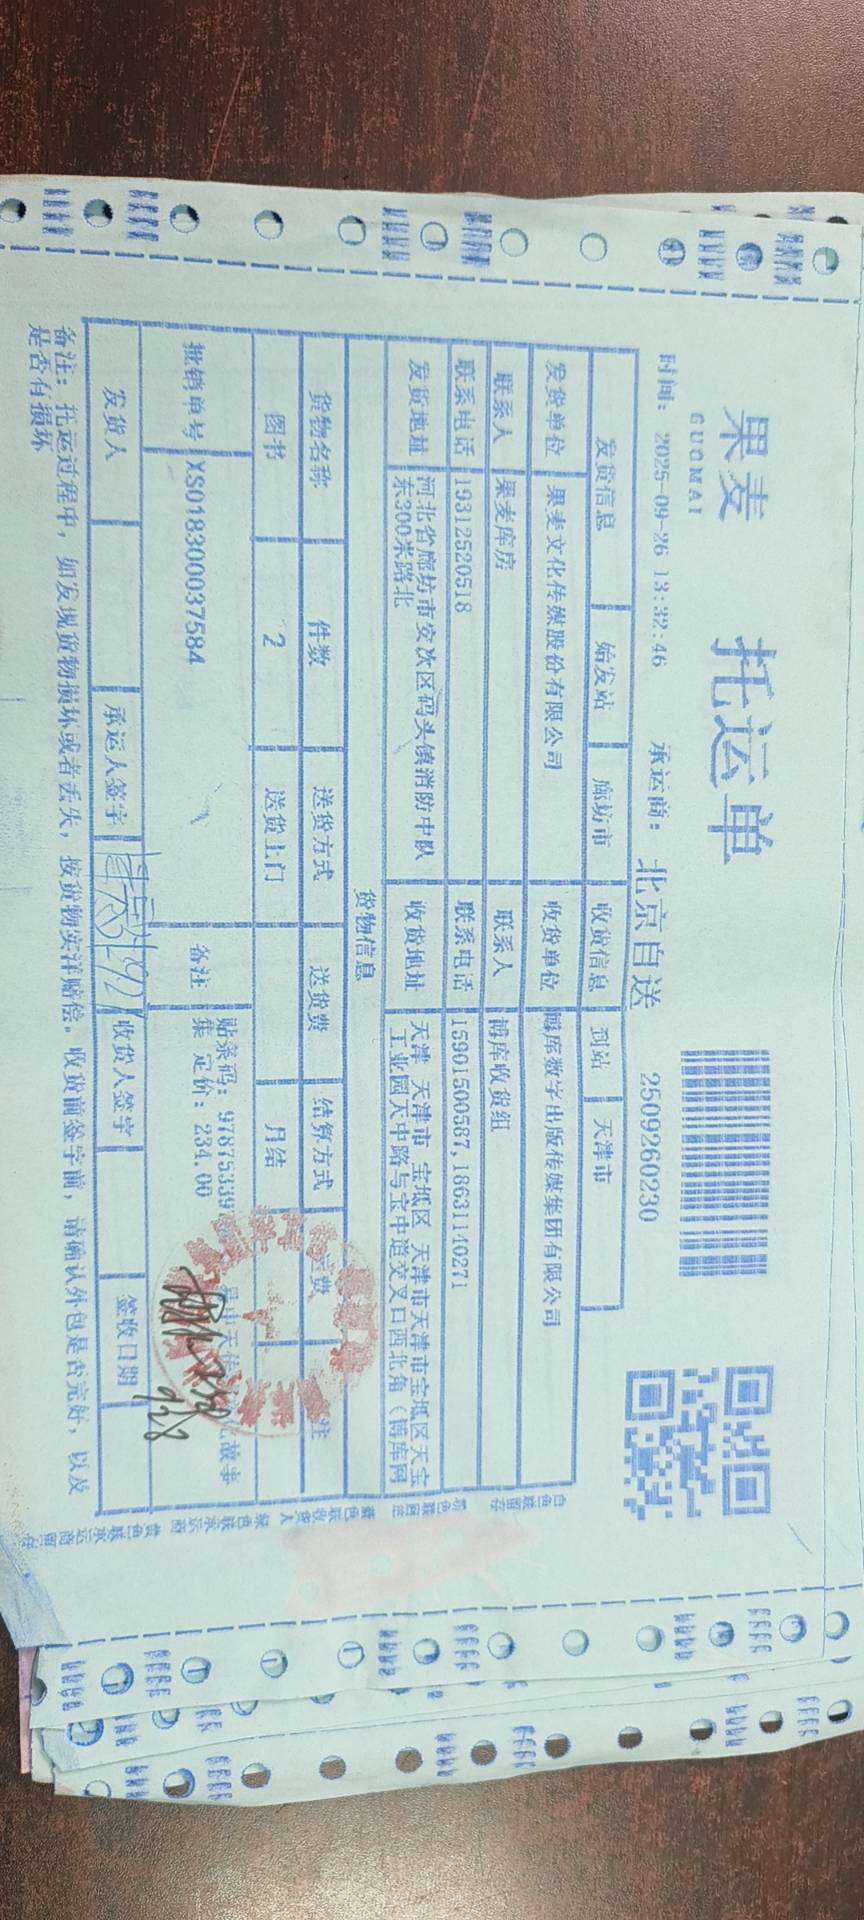 果麦 托运单
GUOMAI
时间： 2025-09-26 13:32:46 承运商： 北京自送 2509260230
发货信息 始发站 廊坊市 收货信息 到站 天津市
发货单位 果麦文化传媒股份有限公司 收货单位 博库数字出版传媒集团有限公司
联系人 果麦库房 联系人 博库收货组
联系电话 19312520518 联系电话 15901500587,18631140271
发货地址 河北省廊坊市安次区码头镇消防中队 收货地址 天津 天津市 宝坻区 天津市天津市宝坻区天宝
东300米路北 工业园天中路与宝中道交叉口西北角（博库网
货物信息
货物名称 件数 送货方式 送货费 结算方式 费 注
图书 2 送货上门 月结
批销单号 XS018300037584 备注 贴条码：9787539 故事
集 定价：234.00
发货人 承运人签字 收货人签字 签收日期
备注：托运过程中，如发现货物损坏或者丢失，按货物实洋赔偿。收货前签字前，请确认外包是否完好，以及
是否有损坏